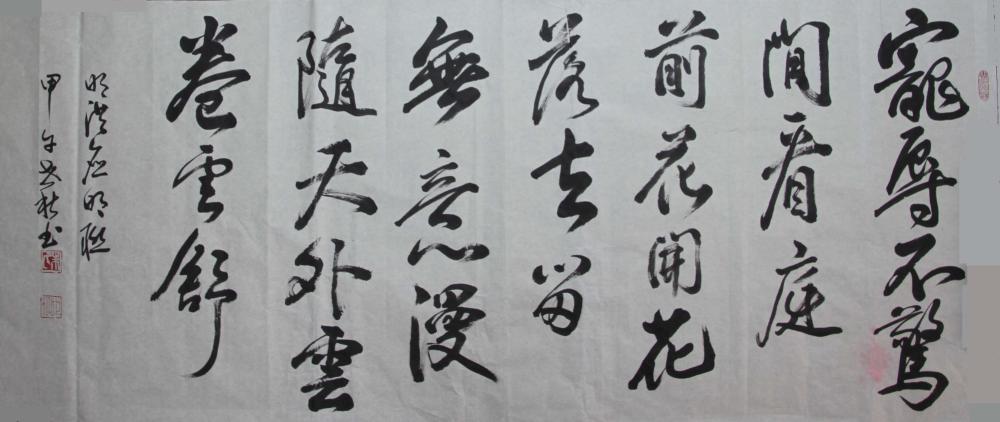 寵辱不驚
閒看庭
前花開花
落去留
無意漫
隨天外雲
卷雲舒
明洪应明联
甲午秋书